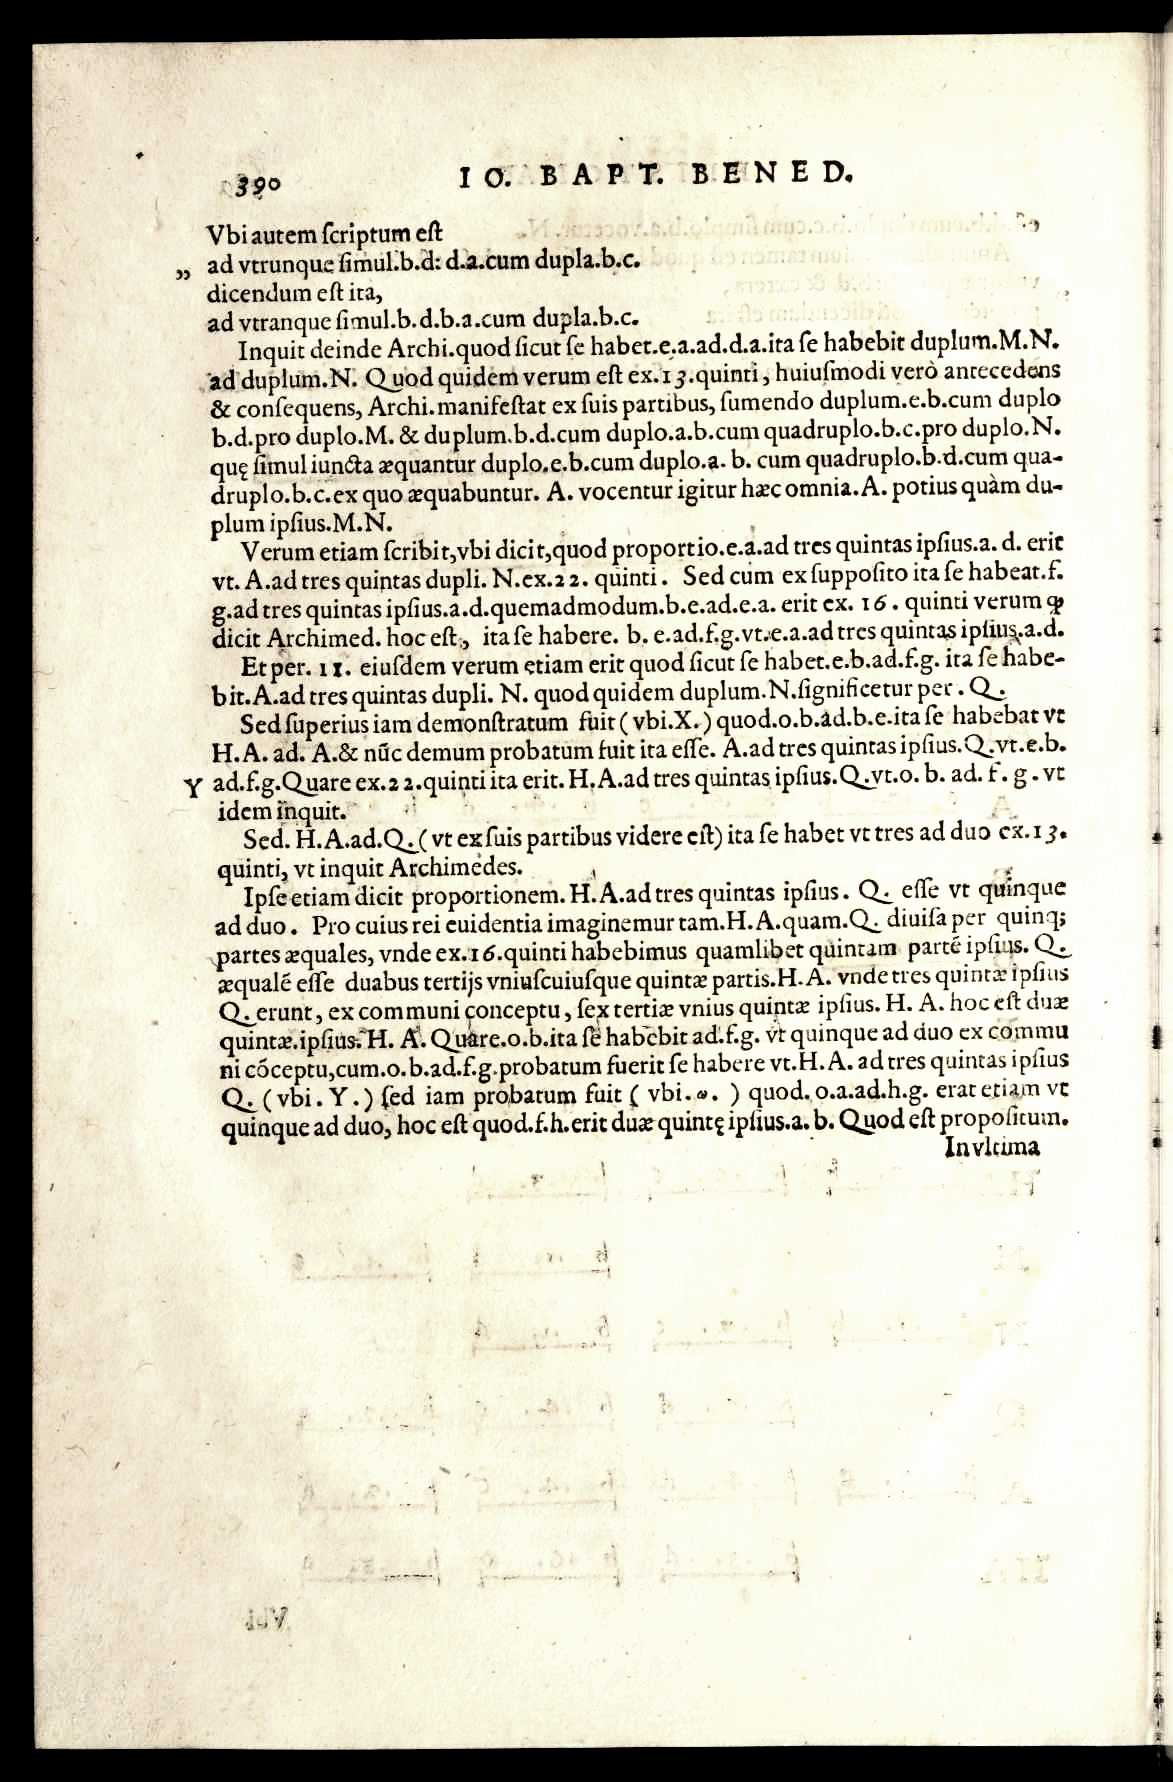 390 IO. BAPT. BENED.
Vbi autem ſcriptum eſt
„ ad vtrunque ſimul.b.d: d.a.cum dupla.b.c.
dicendum eſt ita,
ad vtranque ſimul.b.d.b.a.cum dupla.b.c.
Inquit deinde Archi.quod ſicut ſe habet.e.a.ad.d.a.ita ſe habebit duplum.M.N.
ad duplum.N. Quod quidem verum eſt ex.13.quinti, huiuſmodi verò antecedens
& conſequens, Archi.manifeſtat ex ſuis partibus, ſumendo duplum.e.b.cum duplo
b.d.pro duplo.M. & duplum.b.d.cum duplo.a.b.cum quadruplo.b.c.pro duplo.N.
quę ſimul iuncta æquantur duplo.e.b.cum duplo.a. b. cum quadruplo.b.d.cum qua-
druplo.b.c.ex quo æquabuntur. A. vocentur igitur hæc omnia.A. potius quàm du-
plum ipſius.M.N.
Verum etiam ſcribit,vbi dicit,quod proportio.e.a.ad tres quintas ipſius.a. d. erit
vt. A.ad tres quintas dupli. N.ex.22. quinti. Sed cum ex ſuppoſito ita ſe habeat.f.
g.ad tres quintas ipſius.a.d.quemadmodum.b.e.ad.e.a. erit ex. 16. quinti verum ꝙ
dicit Archimed. hoc eſt, ita ſe habere. b. e.ad.f.g.vt.e.a.ad tres quintas ipſius.a.d.
Et per. 11. eiuſdem verum etiam erit quod ſicut ſe habet.e.b.ad.f.g. ita ſe habe-
bit.A.ad tres quintas dupli. N. quod quidem duplum.N.ſignificetur per. Q.
Sed ſuperius iam demonſtratum fuit (vbi.X.) quod.o.b.ad.b.e.ita ſe habebat vt
H.A. ad. A.& nũc demum probatum fuit ita eſſe. A.ad tres quintas ipſius.Q.vt.e.b.
Y ad.f.g.Quare ex.22.quinti ita erit. H.A.ad tres quintas ipſius.Q.vt.o. b. ad. f. g. vt
idem inquit.
Sed. H.A.ad.Q.(vt ex ſuis partibus videre eſt) ita ſe habet vt tres ad duo ex.13.
quinti, vt inquit Archimedes.
Ipſe etiam dicit proportionem. H.A.ad tres quintas ipſius. Q. eſſe vt quinque
ad duo. Pro cuius rei euidentia imaginemur tam.H.A.quam.Q. diuiſa per quinq;
partes æquales, vnde ex.16.quinti habebimus quamlibet quintam partẽ ipſius. Q.
æqualẽ eſſe duabus tertijs vniuſcuiuſque quintæ partis.H.A. vnde tres quintæ ipſius
Q. erunt, ex communi conceptu, ſex tertiæ vnius quintæ ipſius. H. A. hoc eſt duæ
quintæ.ipſius. H. A. Quare.o.b.ita ſe habebit ad.f.g. vt quinque ad duo ex commu
ni cõceptu,cum.o.b.ad.f.g.probatum fuerit ſe habere vt.H.A. ad tres quintas ipſius
Q. (vbi. Y.) ſed iam probatum fuit ( vbi. . ) quod. o.a.ad.h.g. erat etiam vt
quinque ad duo, hoc eſt quod.f.h.erit duæ quintę ipſius.a. b. Quod eſt propoſitum.
In vltima